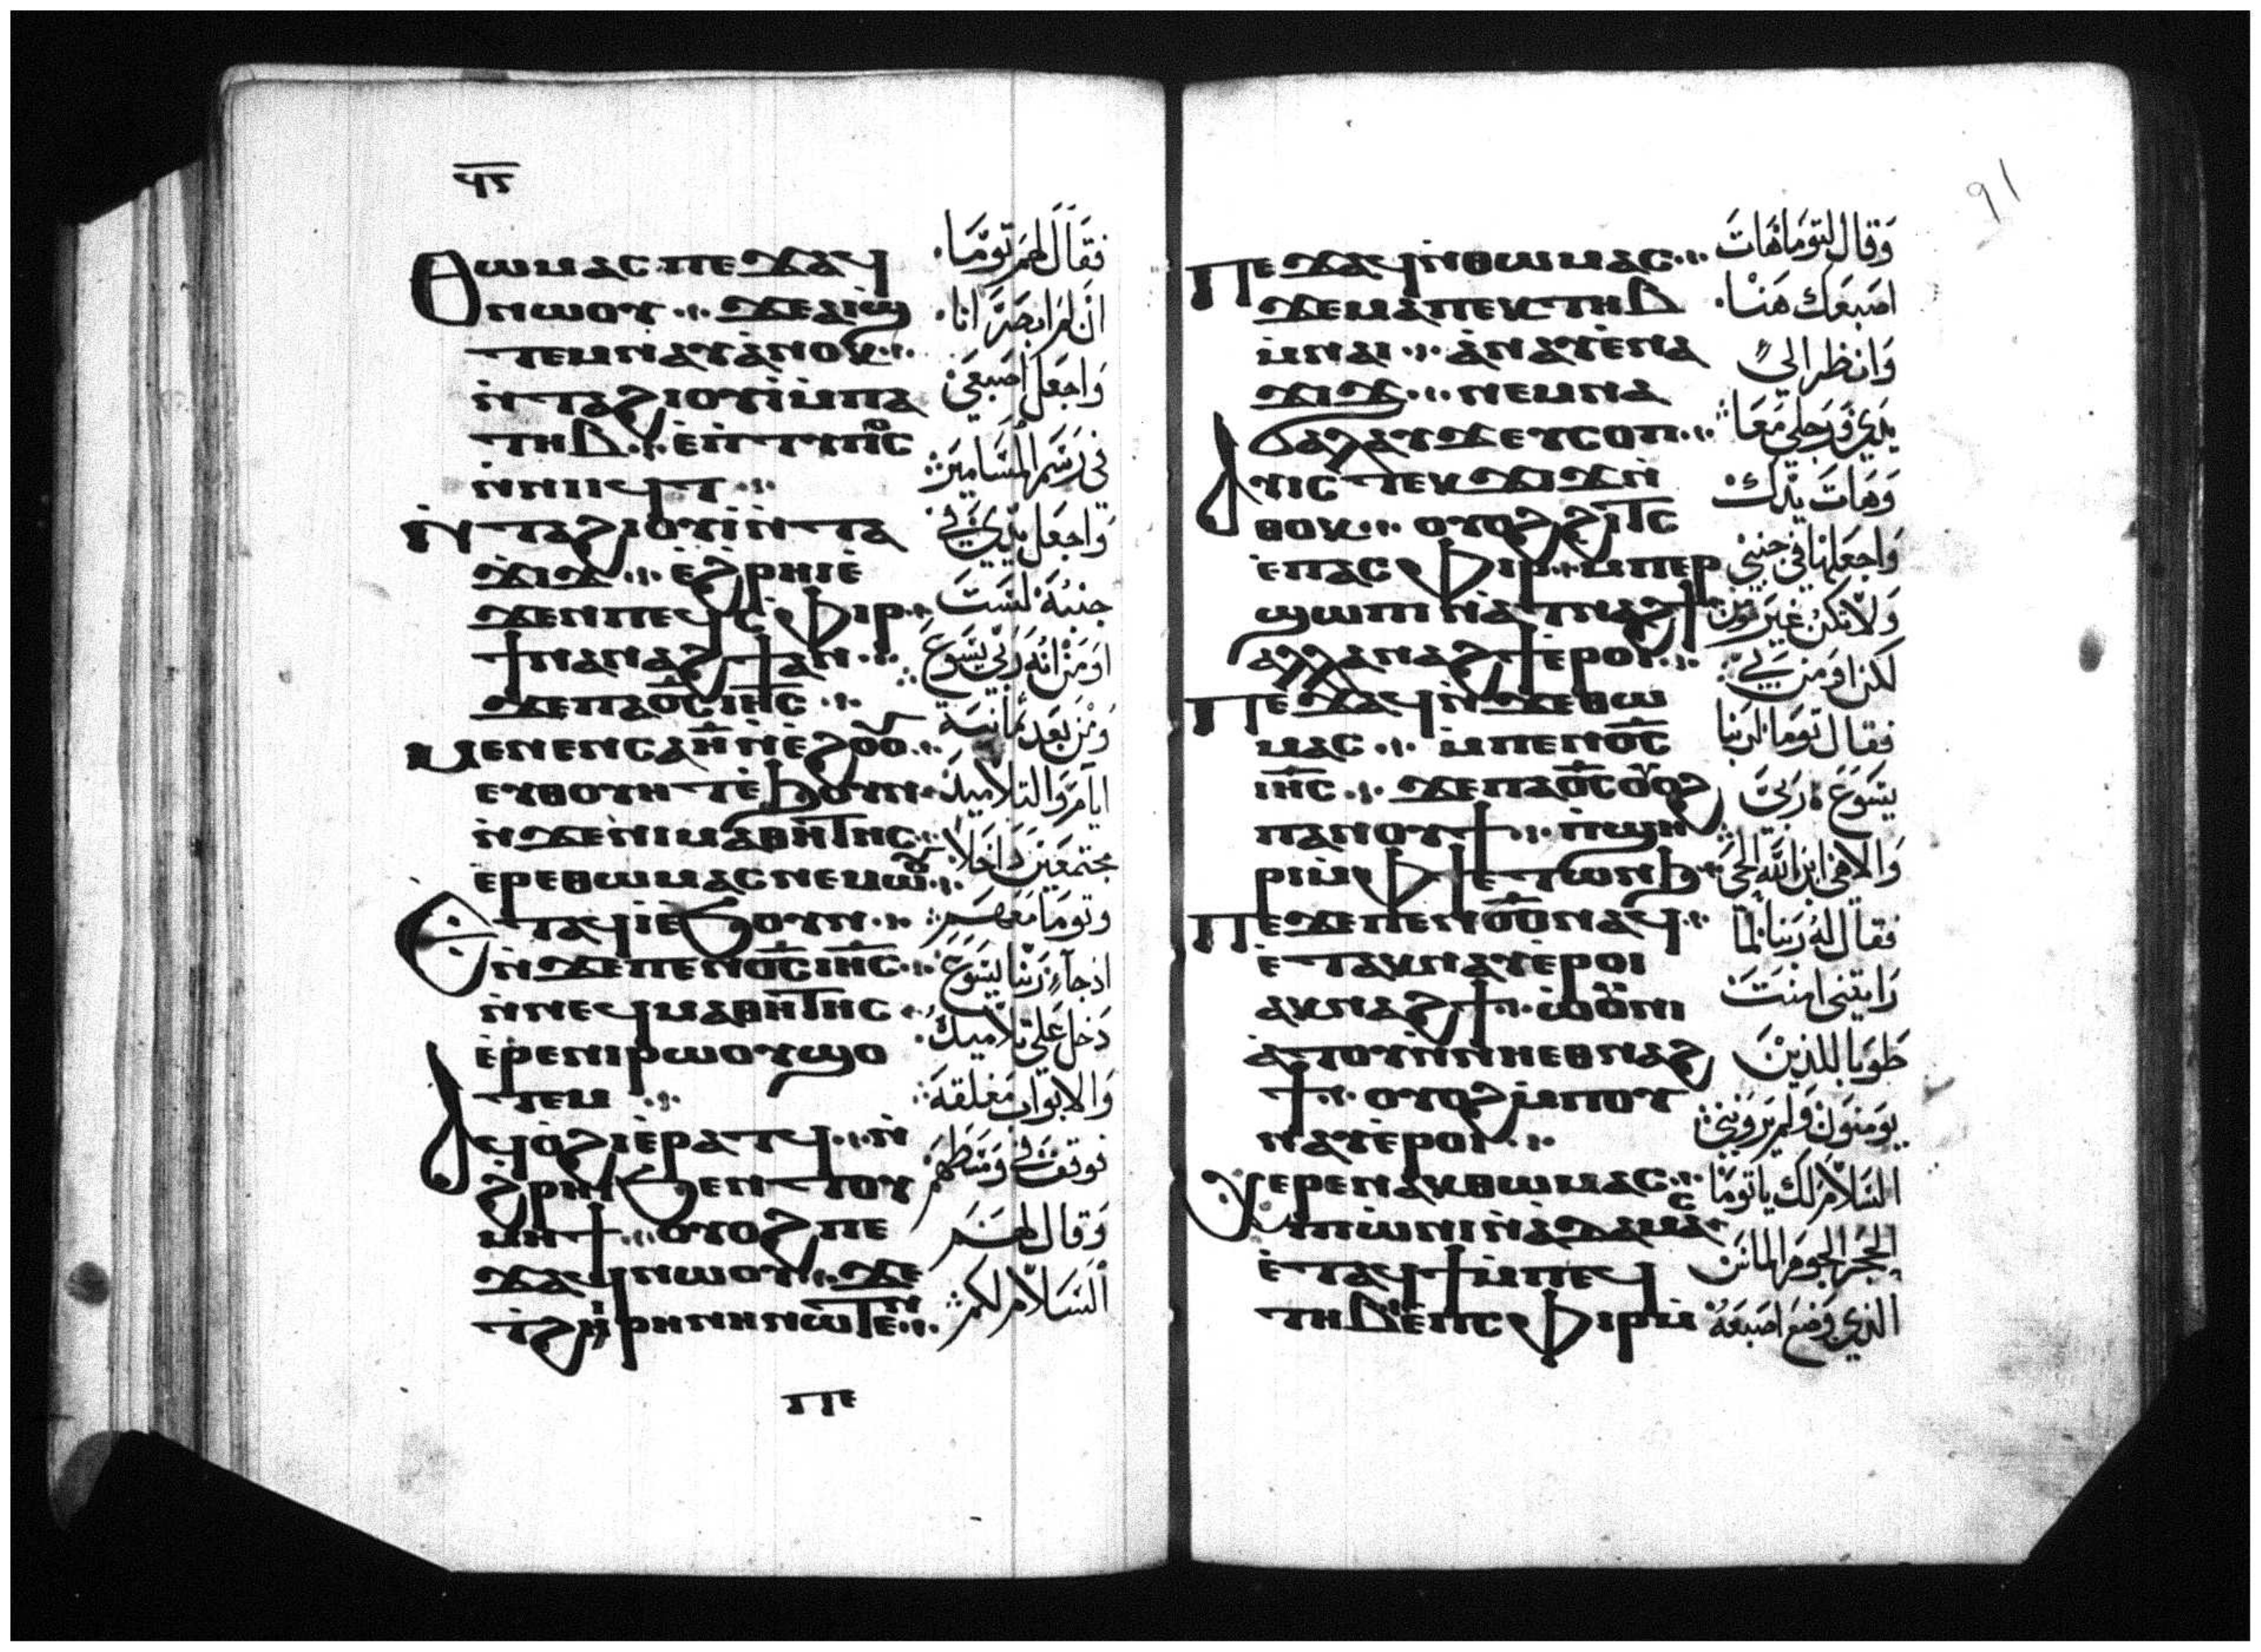 ϥⲋ
Ⲑⲱⲙⲁⲥ ⲡⲉϫⲁϥ
ⲛⲱⲟⲩ ϫⲉ ⲁⲓϣ
ⲧⲉⲙⲛⲁⲩ ⲁⲛⲟⲕ
ⲛⲧⲁϩⲓⲟⲩⲓ ⲙⲡⲁ
ⲧⲏⲃ ⲉⲡⲧⲩⲡⲟⲥ
ⲛⲛⲓⲓϥⲧ
ⲛⲧⲁϩⲓⲟⲩⲓ ⲛⲧⲁ
ϫⲓϫ ⲉϩⲣⲏⲓ ⲉ
ϫⲉⲛ ⲡⲉϥⲥⲫⲓⲣ
ϯⲛⲁⲛⲁϩϯ ⲁⲛ
ϫⲉ ⲡⲁⲟ̅ⲥ̅ ⲓⲏ̅ⲥ̅
ⲙⲉⲛⲉⲛⲥⲁ ⲏ̅ ⲛⲉϩⲟⲟⲩ
ⲉⲩⲑⲟⲩⲏⲧ ⲉϧⲟⲩⲛ
ⲛϫⲉ ⲛⲓⲙⲁⲑⲏⲧⲏⲥ
ⲉⲣⲉ ⲑⲱⲙⲁⲥ ⲛⲉⲙⲱⲟⲩ
Ⲉⲧⲁϥⲓ ⲉϧⲟⲩⲛ
ⲛϫⲉ ⲡⲉⲛⲟ̅ⲥ̅ ⲓⲏ̅ⲥ̅
ⲛⲛⲉϥⲙⲁⲑⲏⲧⲏⲥ
ⲉⲣⲉ ⲛⲓⲣⲱⲟⲩ ϣⲟ
ⲧⲉⲙ
Ⲁϥⲟϩⲓ ⲉⲣⲁⲧϥ ⲛ
ϩⲣⲏⲓ ϧⲉⲛ ⲧⲟⲩ
ⲙⲏϯ ⲟⲩⲟϩ ⲡⲉ
ϫⲁϥ ⲛⲱⲟⲩ ϫⲉ
ⲧϩⲓⲣⲏⲛⲏ ⲛⲱⲧⲉⲛ
ⲡⲉ
فقال لهم توما
ان لم ابصر انا
واجعل اصبعي
في رسم المسامير
واجعل يدي في
جنبه لست
اومن انه ربي يسوع
ومن بعد ثمانية
ايام والتلاميذ
مجتمعين داخلا
وتوما معهم
اذ جاء ربنا يسوع
دخل على تلاميذه
والابواب مغلقة
فوقف في وسطهم
وقال لهم
السلام لكم
91
Ⲡⲉϫⲁϥ ⲛⲑⲱⲙⲁⲥ
ϫⲉ ⲙⲁ ⲡⲉⲕⲧⲏⲃ
ⲙⲛⲁⲓ ⲁⲛⲁⲩ ⲉⲛⲁ
ϫⲓϫ ⲛⲉⲙ ⲛⲁ
ϭⲁⲗⲁⲩϫ ⲉⲩⲥⲟⲡ
Ⲁⲩⲓⲥ ⲧⲉⲕϫⲓϫ ⲛ
ⲑⲟⲕ ⲟⲩⲟϩ ϩⲓⲧⲥ
ⲉⲡⲁⲥⲫⲓⲣ ⲙⲡⲉⲣ
ϣⲱⲡⲓ ⲛⲁⲧⲛⲁϩϯ
ⲁⲗⲗⲁ ⲛⲁϩϯ ⲉⲣⲟⲓ
Ⲡⲉϫⲁϥ ⲛϫⲉ ⲑⲱ
ⲙⲁⲥ ⲙⲡⲉⲛⲟ̅ⲥ̅
ⲓⲏ̅ⲥ̅ ϫⲉ ⲡⲁⲟ̅ⲥ̅ ⲟⲩⲟϩ
ⲡⲁⲛⲟⲩϯ ⲡϣⲏ
ⲣⲓ ⲙⲫϯ ⲉⲧⲱⲛϧ
Ⲡⲉϫⲉ ⲡⲉⲛⲟ̅ⲥ̅ ⲛⲁϥ
ⲉⲧⲁⲕⲛⲁⲩ ⲉⲣⲟⲓ
ⲁⲕⲛⲁϩϯ ⲱⲟⲩⲛⲓ
ⲁⲧⲟⲩ ⲛⲛⲏ ⲉⲑⲛⲁϩ
ϯ ⲟⲩⲟϩ ⲙⲡⲟⲩ
ⲛⲁⲩ ⲉⲣⲟⲓ
Ⲭⲉⲣⲉ ⲛⲁⲕ ⲑⲱⲙⲁⲥ
ⲡⲱⲛⲓ ⲛⲁⲇⲁⲙⲁⲥ
ⲉⲧⲁϥϯ ⲙⲡⲉϥ
ⲧⲏⲃ ⲉⲡⲥⲫⲓⲣ ⲙ
وقال لتوما هات
اصبعك هنا
وانظر الي
يدي ورجلي معا
وهات يدك
واجعلها في جنبي
ولا تكن غير مومن
لكن اومن بي
فقال توما لربنا
يسوع ربي
والاهي ابن الله الحي
فقال له ربنا لما
رايتني امنت
طوبا للذين
يومنون ولم يروني
السلام لك يا توما
الحجر الجوهر الماس
الذي وضع اصبعه